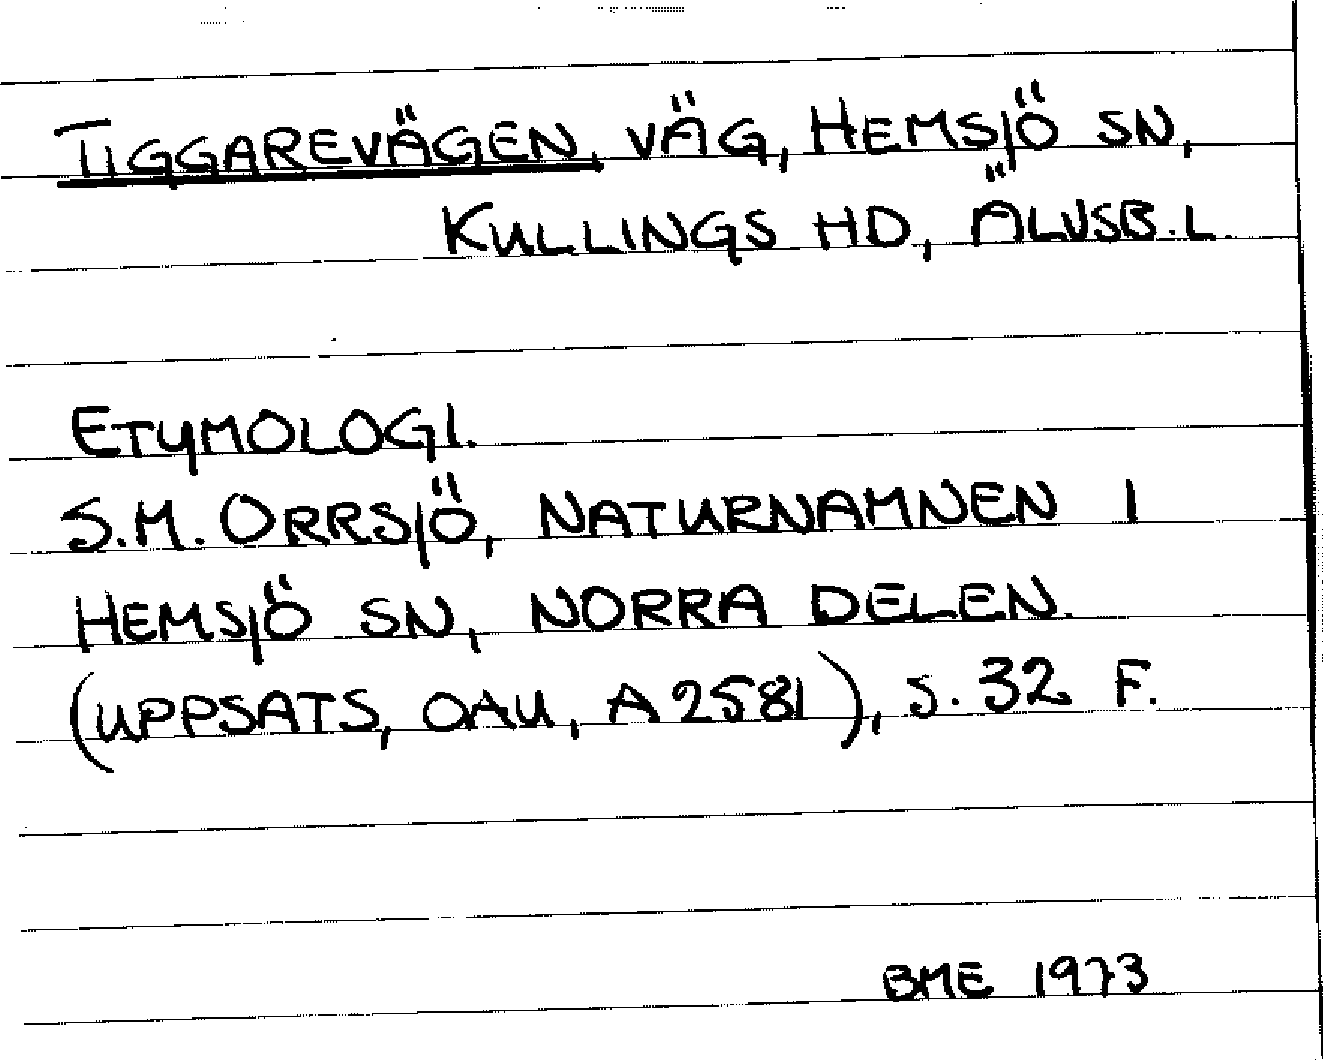 TIGGAREVÄGEN, VÄG, HEMSJÖ SN,
KULLINGS HD, ÄLVSB. L.
ETYMOLOGI.
S.M. ORRSJÖ, NATURNAMNEN I
HEMSJÖ SN, NORRA DELEN.
(UPPSATS, OAU, A 2581), S. 32 F.
BME 1973